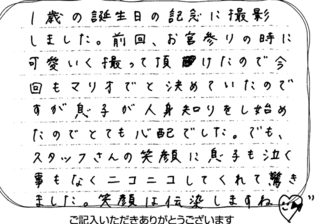 1歳の誕生日の記念に撮影
しました。前回、お宮参りの時に
可愛いく撮って頂けたので今
回もマリオでと決めていたので
すが息子が人身知りをし始め
たのでとても心配でした。でも、
スタッフさんの笑顔に息子も泣く
事もなくニコニコしてくれて驚き
ました。笑顔は伝染しますね
ご記入いただきありがとうございます